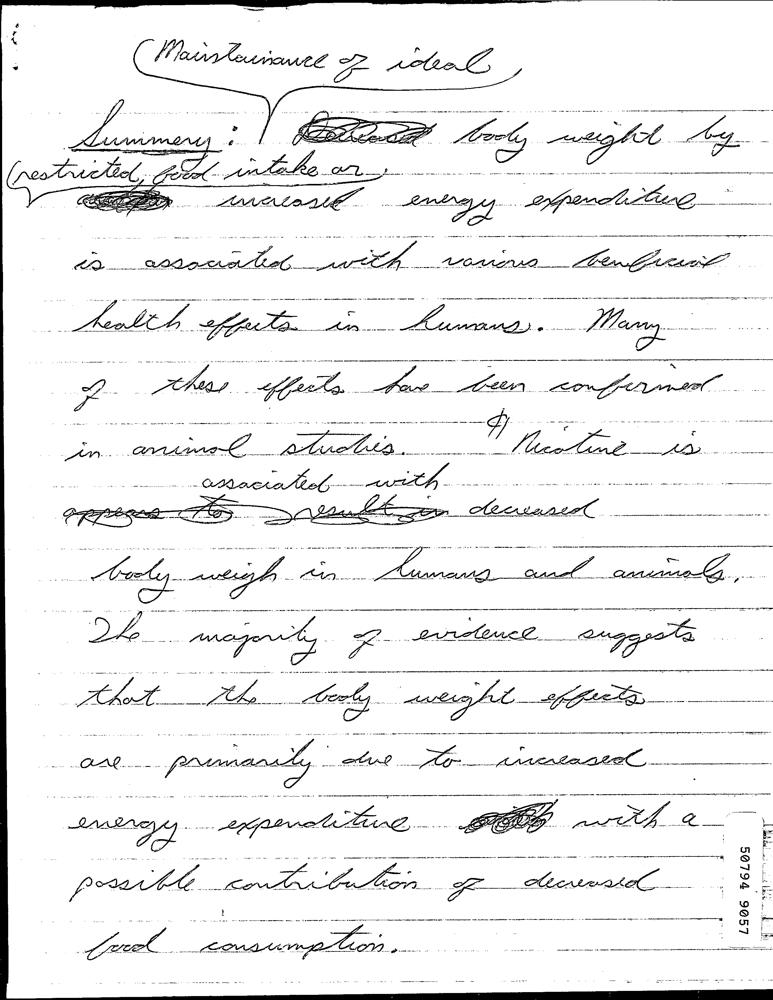 Maintainance of ideal
Summery: Decreased body weight by
restricted, food intake or
increased energy expenditure
is associated with various beneficial
health effects in humans. Many
of these effects have been confirmed
in animal studies. ¶ Nicotine is
associated with
appears to result in decreased
body weigh in humans and animals.
The majority of evidence suggests
that the body weight effects
are primarily due to increased
energy expenditure with a
possible contribution of decreased
food consumption.
50794 9057